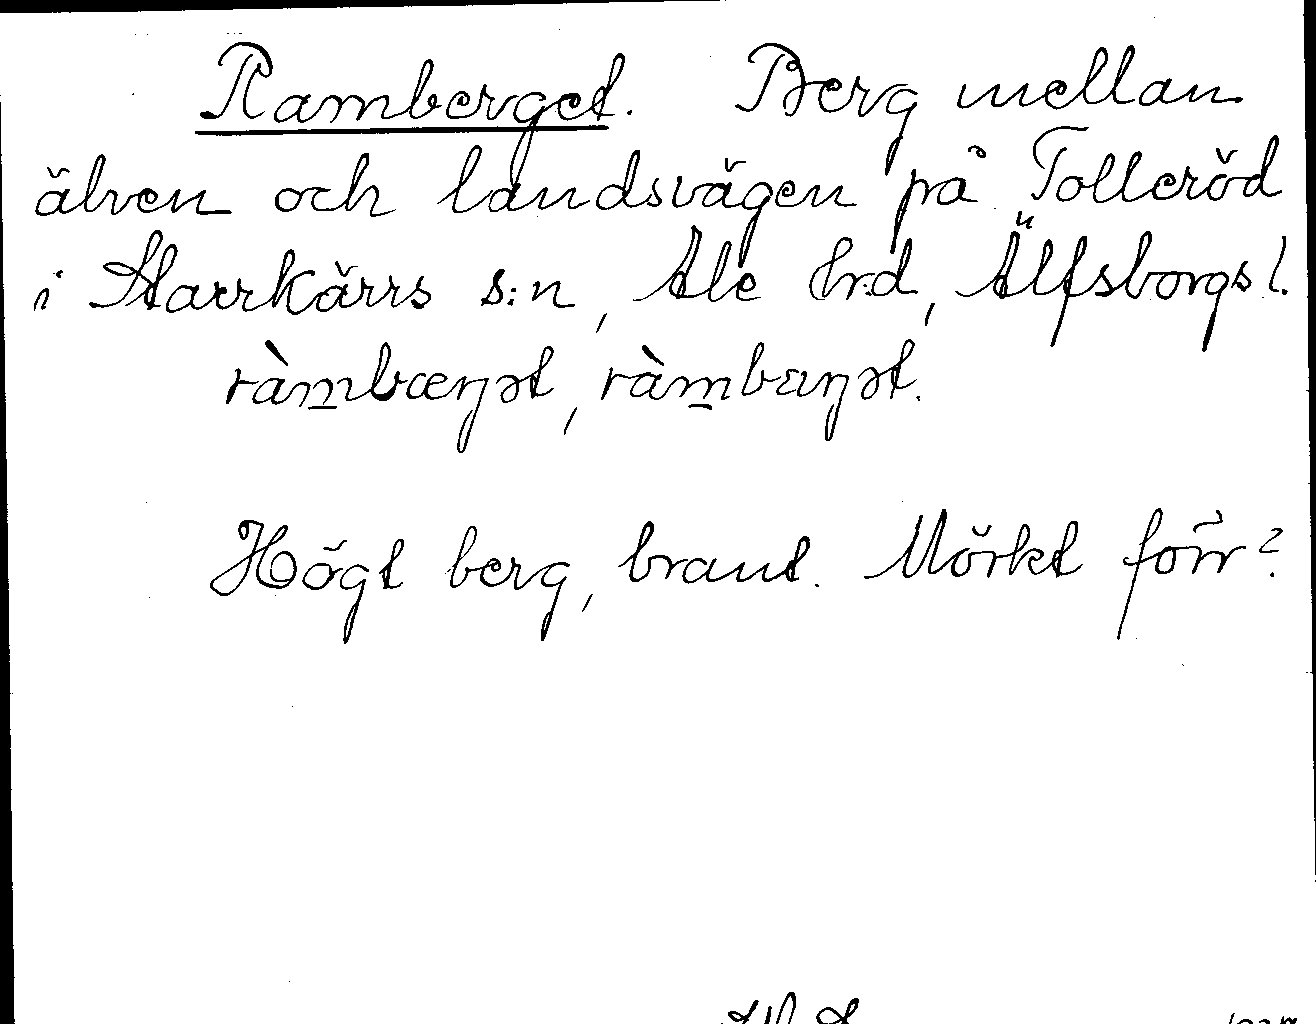 Ramberget. Berg mellan
älven och landsvägen på Tolleröd
i Starrkärrs s:n, Ale hrd, Älfsborgs l.
ràm̲bæŋət, ràm̲bɛŋət.
Högt berg, brant. Mörkt förr?